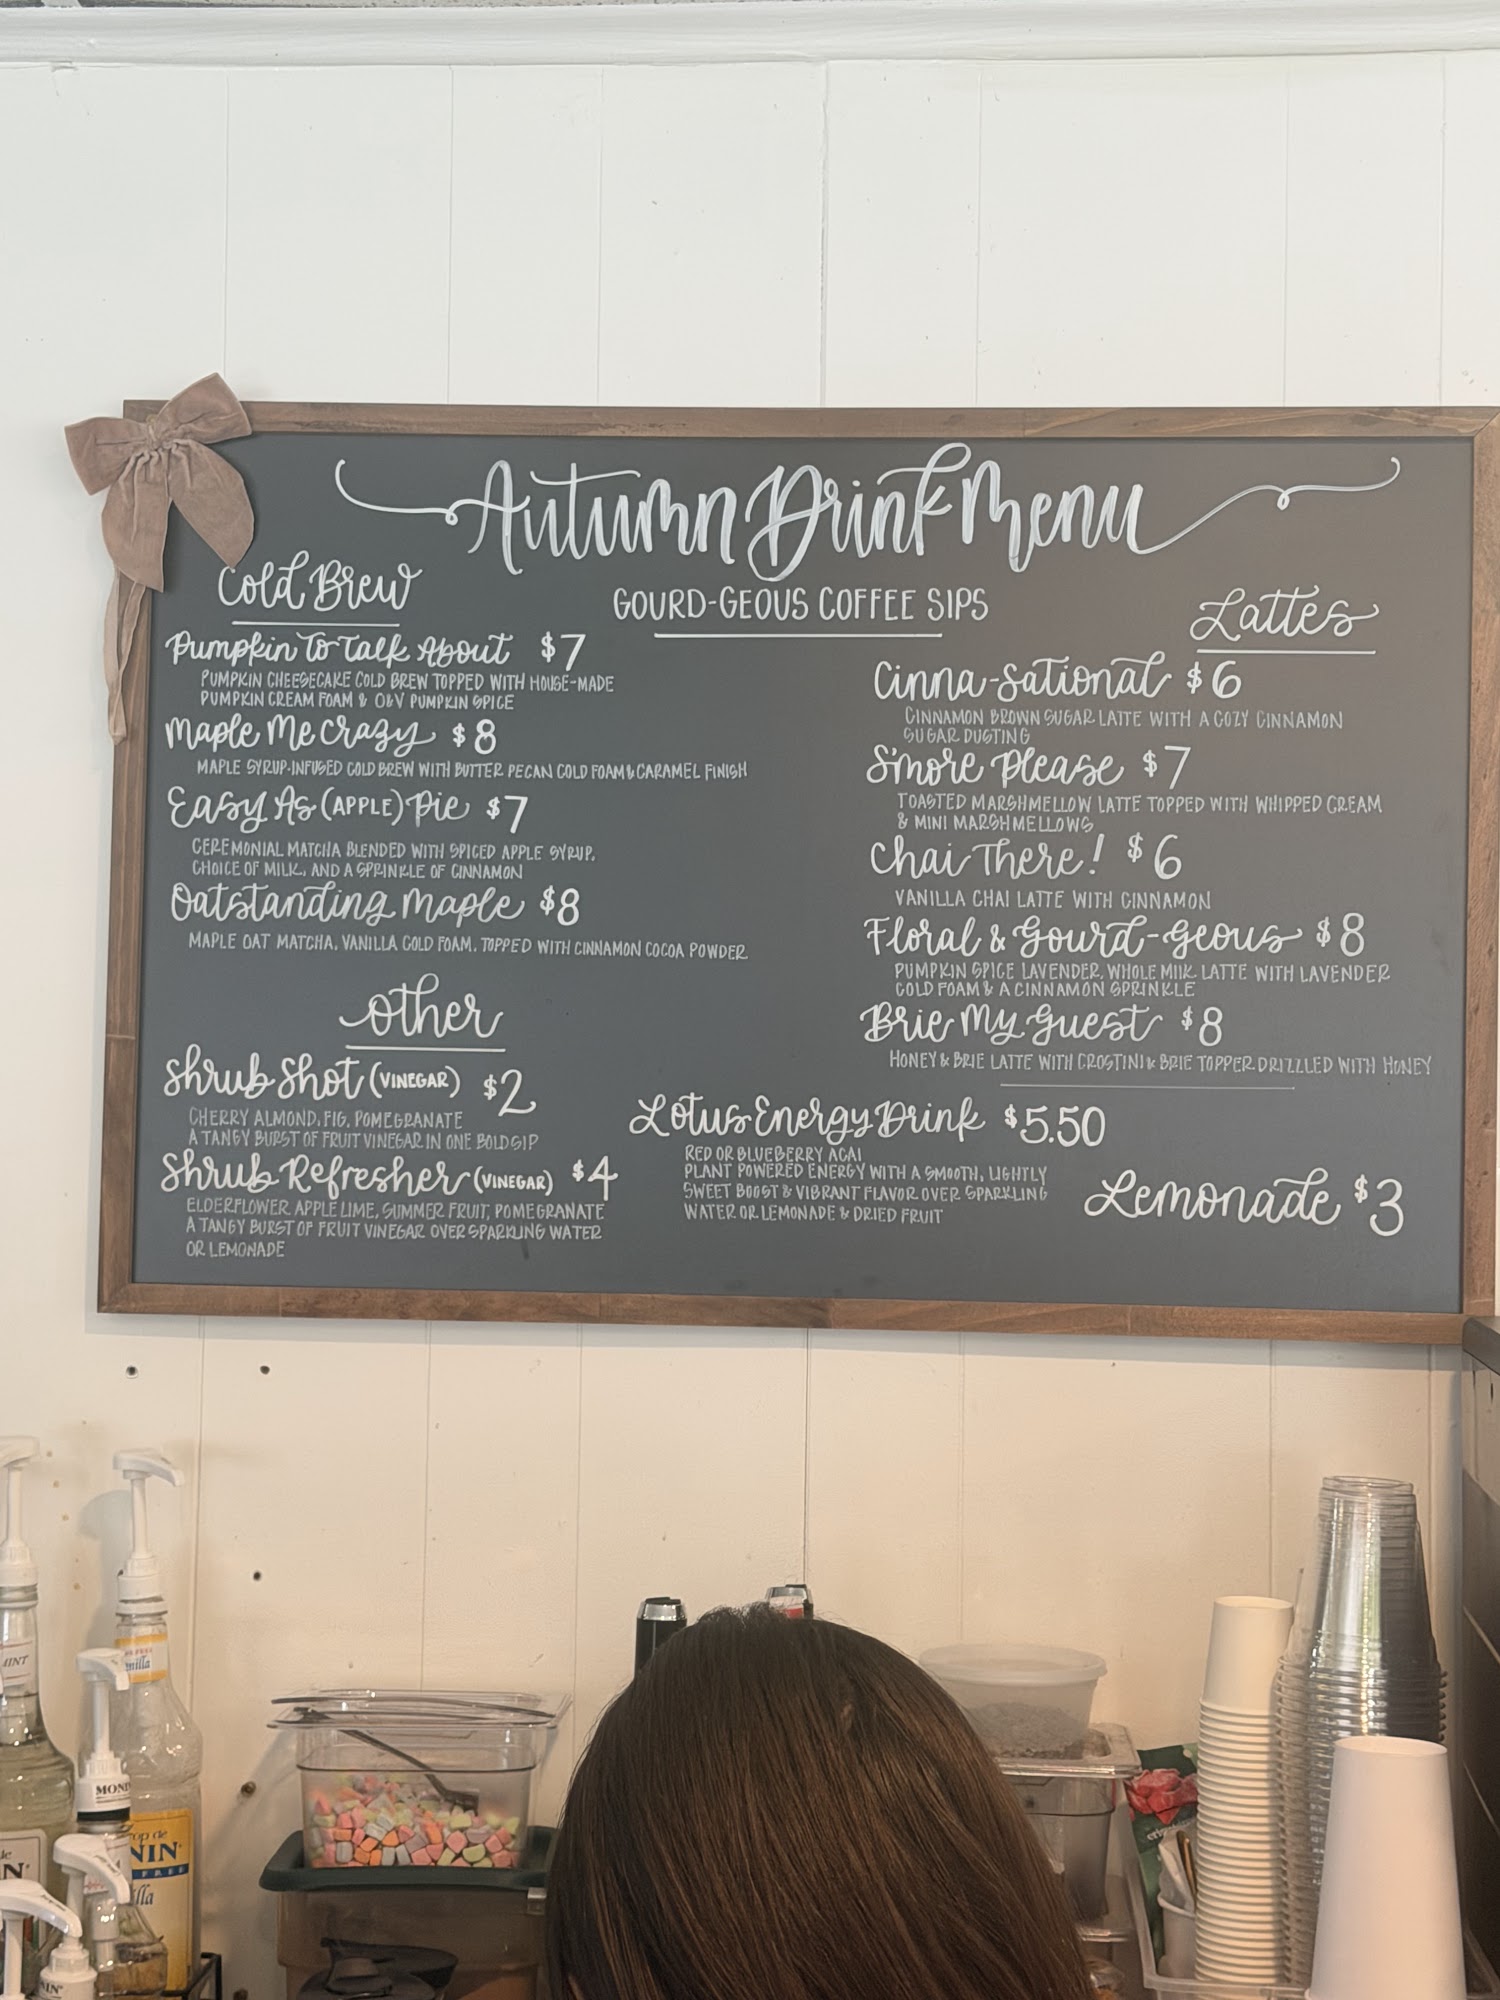 Autumn Drink Menu
GOURD-GEOUS COFFEE SIPS
Cold Brew
Pumpkin To Talk About $7
PUMPKIN CHEESECAKE COLD BREW TOPPED WITH HOUSE-MADE
PUMPKIN CREAM FOAM & O&V PUMPKIN SPICE
Maple Me Crazy $8
MAPLE SYRUP-INFUSED COLD BREW WITH BUTTER PECAN COLD FOAM & CARAMEL FINISH
Easy As (APPLE) Pie $7
CEREMONIAL MATCHA BLENDED WITH SPICED APPLE SYRUP,
CHOICE OF MILK, AND A SPRINKLE OF CINNAMON
Oatstanding Maple $8
MAPLE OAT MATCHA, VANILLA COLD FOAM, TOPPED WITH CINNAMON COCOA POWDER
Lattes
Cinna-sational $6
CINNAMON BROWN SUGAR LATTE WITH A COZY CINNAMON
SUGAR DUSTING
S'more Please $7
TOASTED MARSHMELLOW LATTE TOPPED WITH WHIPPED CREAM
& MINI MARSHMELLOWS
Chai There! $6
VANILLA CHAI LATTE WITH CINNAMON
Floral & Gourd-geous $8
PUMPKIN SPICE LAVENDER, WHOLE MILK LATTE WITH LAVENDER
COLD FOAM & A CINNAMON SPRINKLE
Brie My Guest $8
HONEY & BRIE LATTE WITH CROSTINI & BRIE TOPPER DRIZZLED WITH HONEY
Other
Shrub Shot (VINEGAR) $2
CHERRY ALMOND, FIG, POMEGRANATE
A TANGY BURST OF FRUIT VINEGAR IN ONE BOLD SIP
Shrub Refresher (VINEGAR) $4
ELDERFLOWER APPLE LIME, SUMMER FRUIT, POMEGRANATE
A TANGY BURST OF FRUIT VINEGAR OVER SPARKLING WATER
OR LEMONADE
Lotus Energy Drink $5.50
RED OR BLUEBERRY ACAI
PLANT POWERED ENERGY WITH A SMOOTH, LIGHTLY
SWEET BOOST & VIBRANT FLAVOR OVER SPARKLING
WATER OR LEMONADE & DRIED FRUIT
Lemonade $3